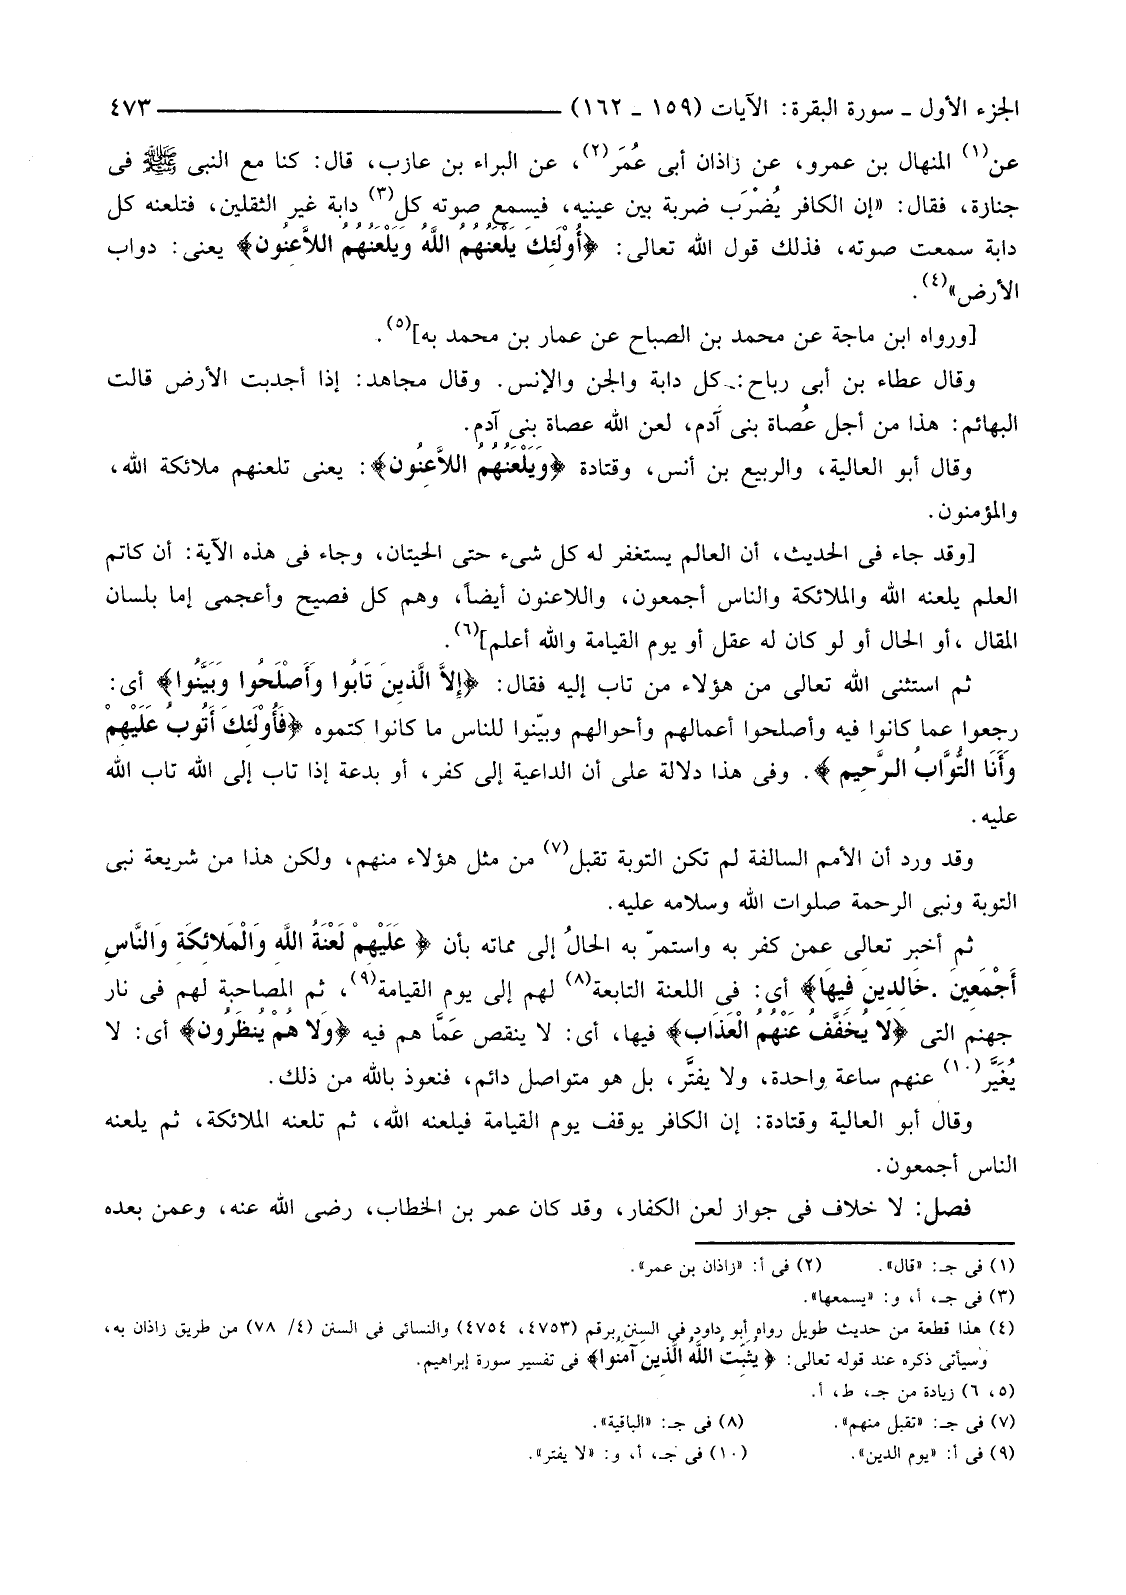 الجزء الأول ـ سورة البقرة: الآيات (١٥٩ ـ ١٦٢) ٤٧٣
عن(١) المنهال بن عمرو، عن زاذان أبى عُمَر(٢)، عن البراء بن عازب، قال: كنا مع النبى ﷺ فى
جنازة، فقال: «إن الكافر يُضْرَب ضربة بين عينيه، فيسمع صوته كل(٣) دابة غير الثقلين، فتلعنه كل
دابة سمعت صوته، فذلك قول الله تعالى: ﴿أُوْلَئِكَ يَلْعَنُهُمُ اللَّهُ وَيَلْعَنُهُمُ اللاَّعِنُون﴾ يعنى: دواب
الأرض»(٤).
[ورواه ابن ماجة عن محمد بن الصباح عن عمار بن محمد به](٥).
وقال عطاء بن أبى رباح: كل دابة والجن والإنس. وقال مجاهد: إذا أجدبت الأرض قالت
البهائم: هذا من أجل عُصاة بنى آدم، لعن الله عصاة بنى آدم.
وقال أبو العالية، والربيع بن أنس، وقتادة ﴿وَيَلْعَنُهُمُ اللاَّعِنُون﴾: يعنى تلعنهم ملائكة الله،
والمؤمنون.
[وقد جاء فى الحديث، أن العالم يستغفر له كل شىء حتى الحيتان، وجاء فى هذه الآية: أن كاتم
العلم يلعنه الله والملائكة والناس أجمعون، واللاعنون أيضاً، وهم كل فصيح وأعجمى إما بلسان
المقال ،أو الحال أو لو كان له عقل أو يوم القيامة والله أعلم](٦).
ثم استثنى الله تعالى من هؤلاء من تاب إليه فقال: ﴿إِلاَّ الَّذِينَ تَابُوا وَأَصْلَحُوا وَبَيَّنُوا﴾ أى:
رجعوا عما كانوا فيه وأصلحوا أعمالهم وأحوالهم وبيّنوا للناس ما كانوا كتموه ﴿فَأُوْلَئِكَ أَتُوبُ عَلَيْهِمْ
وَأَنَا التَّوَّابُ الرَّحِيم ﴾. وفى هذا دلالة على أن الداعية إلى كفر، أو بدعة إذا تاب إلى الله تاب الله
عليه.
وقد ورد أن الأمم السالفة لم تكن التوبة تقبل(٧) من مثل هؤلاء منهم، ولكن هذا من شريعة نبى
التوبة ونبى الرحمة صلوات الله وسلامه عليه.
ثم أخبر تعالى عمن كفر به واستمرّ به الحالُ إلى مماته بأن ﴿ عَلَيْهِمْ لَعْنَةُ اللَّه وَالْمَلائِكَة وَالنَّاسِ
أَجْمَعِينَ .خَالِدِينَ فِيهَا﴾ أى: فى اللعنة التابعة(٨) لهم إلى يوم القيامة(٩)، ثم المصاحبة لهم فى نار
جهنم التى ﴿لا يُخَفَّفُ عَنْهُمُ الْعَذَابُ﴾ فيها، أى: لا ينقص عَمَّا هم فيه ﴿وَلا هُمْ يُنظَرُون﴾ أى: لا
يُغَيَّر(١٠) عنهم ساعة واحدة، ولا يفتَّر، بل هو متواصل دائم، فنعوذ بالله من ذلك.
وقال أبو العالية وقتادة: إن الكافر يوقف يوم القيامة فيلعنه الله، ثم تلعنه الملائكة، ثم يلعنه
الناس أجمعون.
فصل: لا خلاف فى جواز لعن الكفار، وقد كان عمر بن الخطاب، رضى الله عنه، وعمن بعده
(١) فى جـ: «قال». (٢) فى أ: «زاذان بن عمر».
(٣) فى جـ، أ، و: «يسمعها».
(٤) هذا قطعة من حديث طويل رواه أبو داود فى السنن برقم (٤٧٥٣، ٤٧٥٤) والنسائى فى السنن (٤/ ٧٨) من طريق زاذان به،
وسيأتى ذكره عند قوله تعالى: ﴿ يُثَبِّتُ اللَّهُ الَّذِينَ آمَنُوا﴾ فى تفسير سورة إبراهيم.
(٥، ٦) زيادة من جـ، ط، أ.
(٧) فى جـ: «تقبل منهم». (٨) فى جـ: «الباقية».
(٩) فى أ: «يوم الدين». (١٠) فى جـ، أ، و: «لا يفتر».